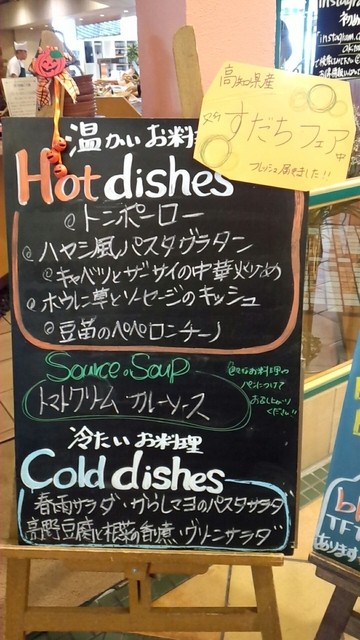 高知県産
すだちフェア
中
フレッシュ届きました!!
温かいお料理
Hot dishes
@トンポーロー
@ハヤシ風パスタグラタン
@キャベツとザーサイの中華炒め
@ホウレン草とソーセージのキッシュ
@豆苗のペペロンチーノ
Source・Soup
トマトクリーム カレーソース
@をお料理や
パンにつけて
おめしあがり
ください!!
冷たいお料理
Cold dishes
春雨サラダ・からしマヨのパスタサラダ
高野豆腐と根菜の旨煮・グリーンサラダ
Instagram